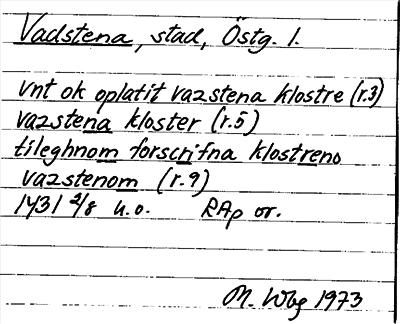 Vadstena, stad, Östg. l.
vnt ok oplatit vazstena klostre (r.3)
vazstena kloster (r.5)
tileghnom forscrifna klostreno
vazstenom (r.9)
1431 2/8 u.o. RAp or.
M. Wbg 1973